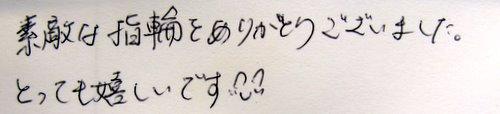 素敵な指輪をありがとうございました。
とっても嬉しいです!!